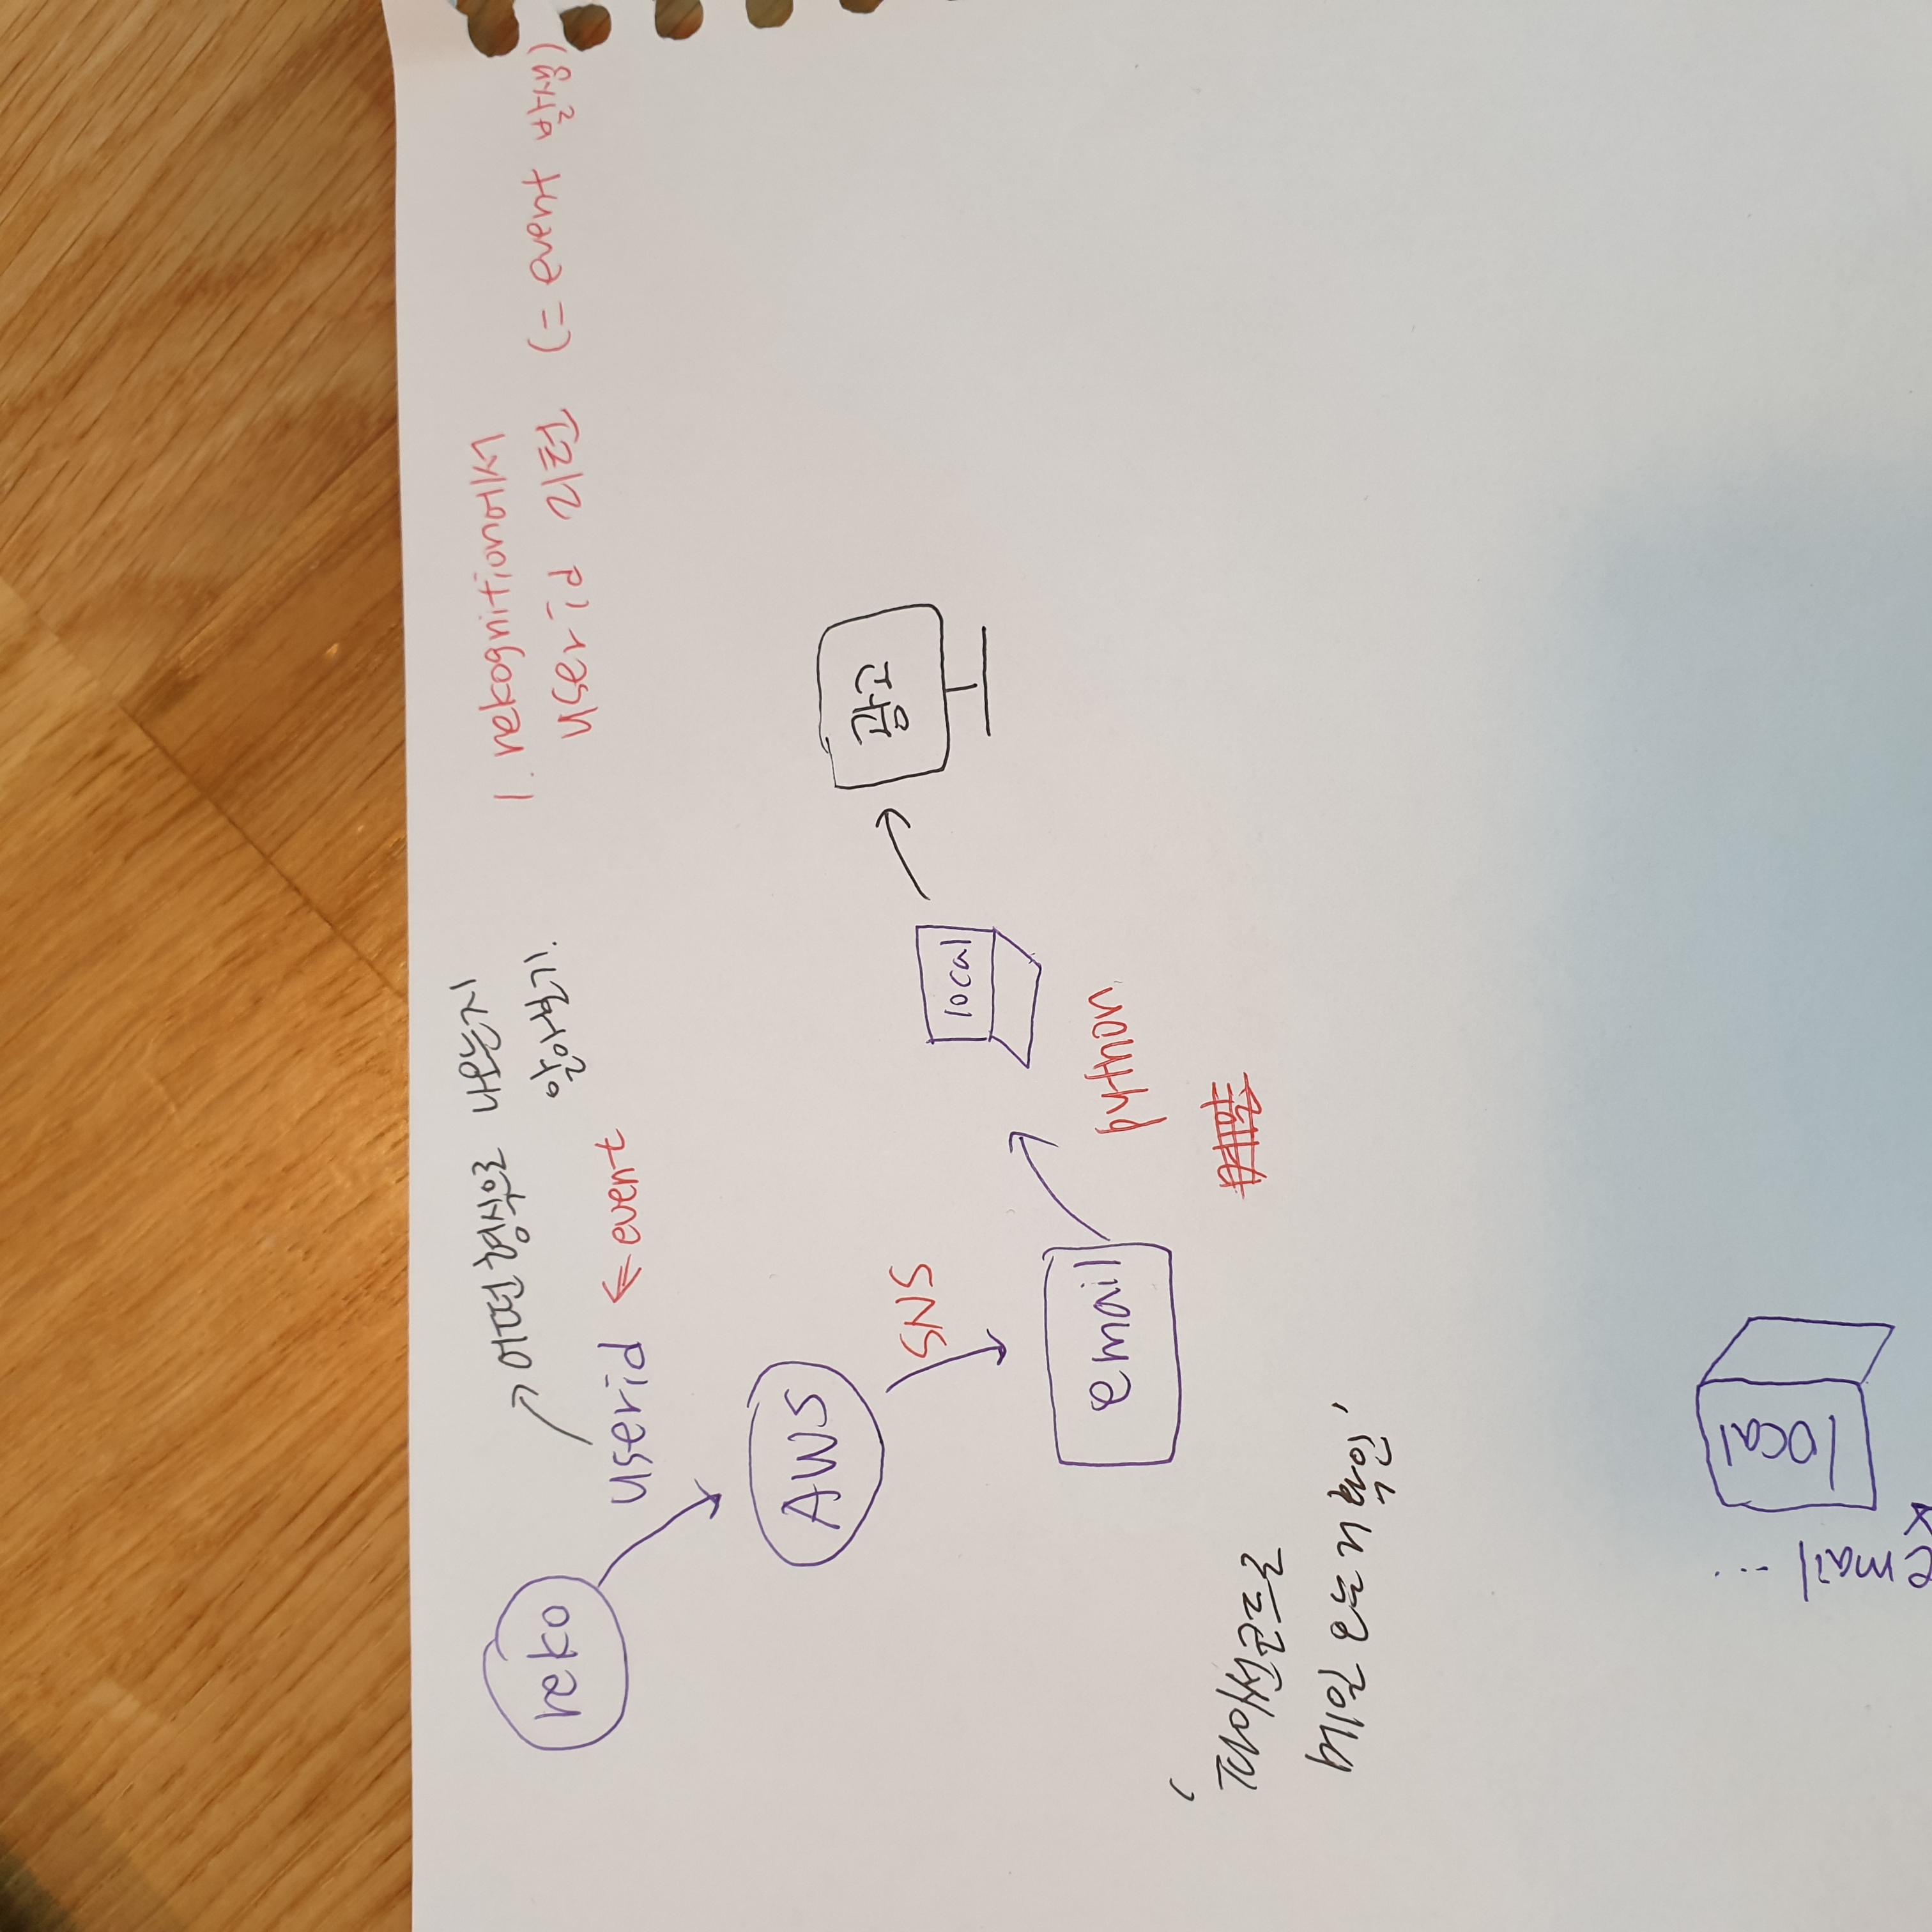 reko
어떤 형식으로 나오는지
알아보기.
userid ← event
1. rekognition에서
userid 리턴 (= event 발생)
AWS
SNS
광고
local
email
python
'파이썬코드로
메일 오는거 확인'
local
email ...